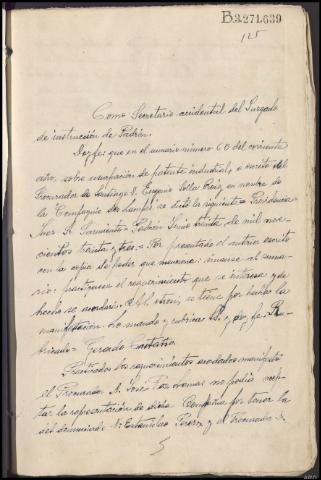 B.3.271.639
125
Como Secretario accidental del Juzgado
de instrucción de Padrón.
Doy fe: que en el sumario número 60 del corriente
año, sobre usurpación de patente industrial, a escrito del
Procurador de Santiago D. Eugenio Ruiz, en nombre de
la Compañía de se dictó la siguiente = Providencia
Juez Sr. Sarmiento = Padrón Junio treinta de mil nove-
cientos treinta y tres = Por presentado el anterior escrito
con la copia de poder que menciona: únanse al suma-
rio: practíquese el requerimiento que se interesa y de
hecho se acordará. Al otrosí, se tiene por hecha la
manifestación. Lo mandó y rubrica S.Sª, doy fe. Ru-
bricado = Gerardo
Practicados los requerimientos acordados manifestó
el Procurador D. José no podía acep-
tar la representación de dicha Compañía por tener la
del denunciado D. Estanislao Perez y el Procurador D.